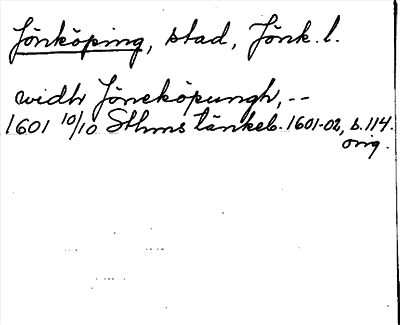 Jönköping, stad, Jönk. l.
widh Jöneköpungh, --
1601 10/10 Sthms tänkeb. 1601-02, s. 114.
orig.